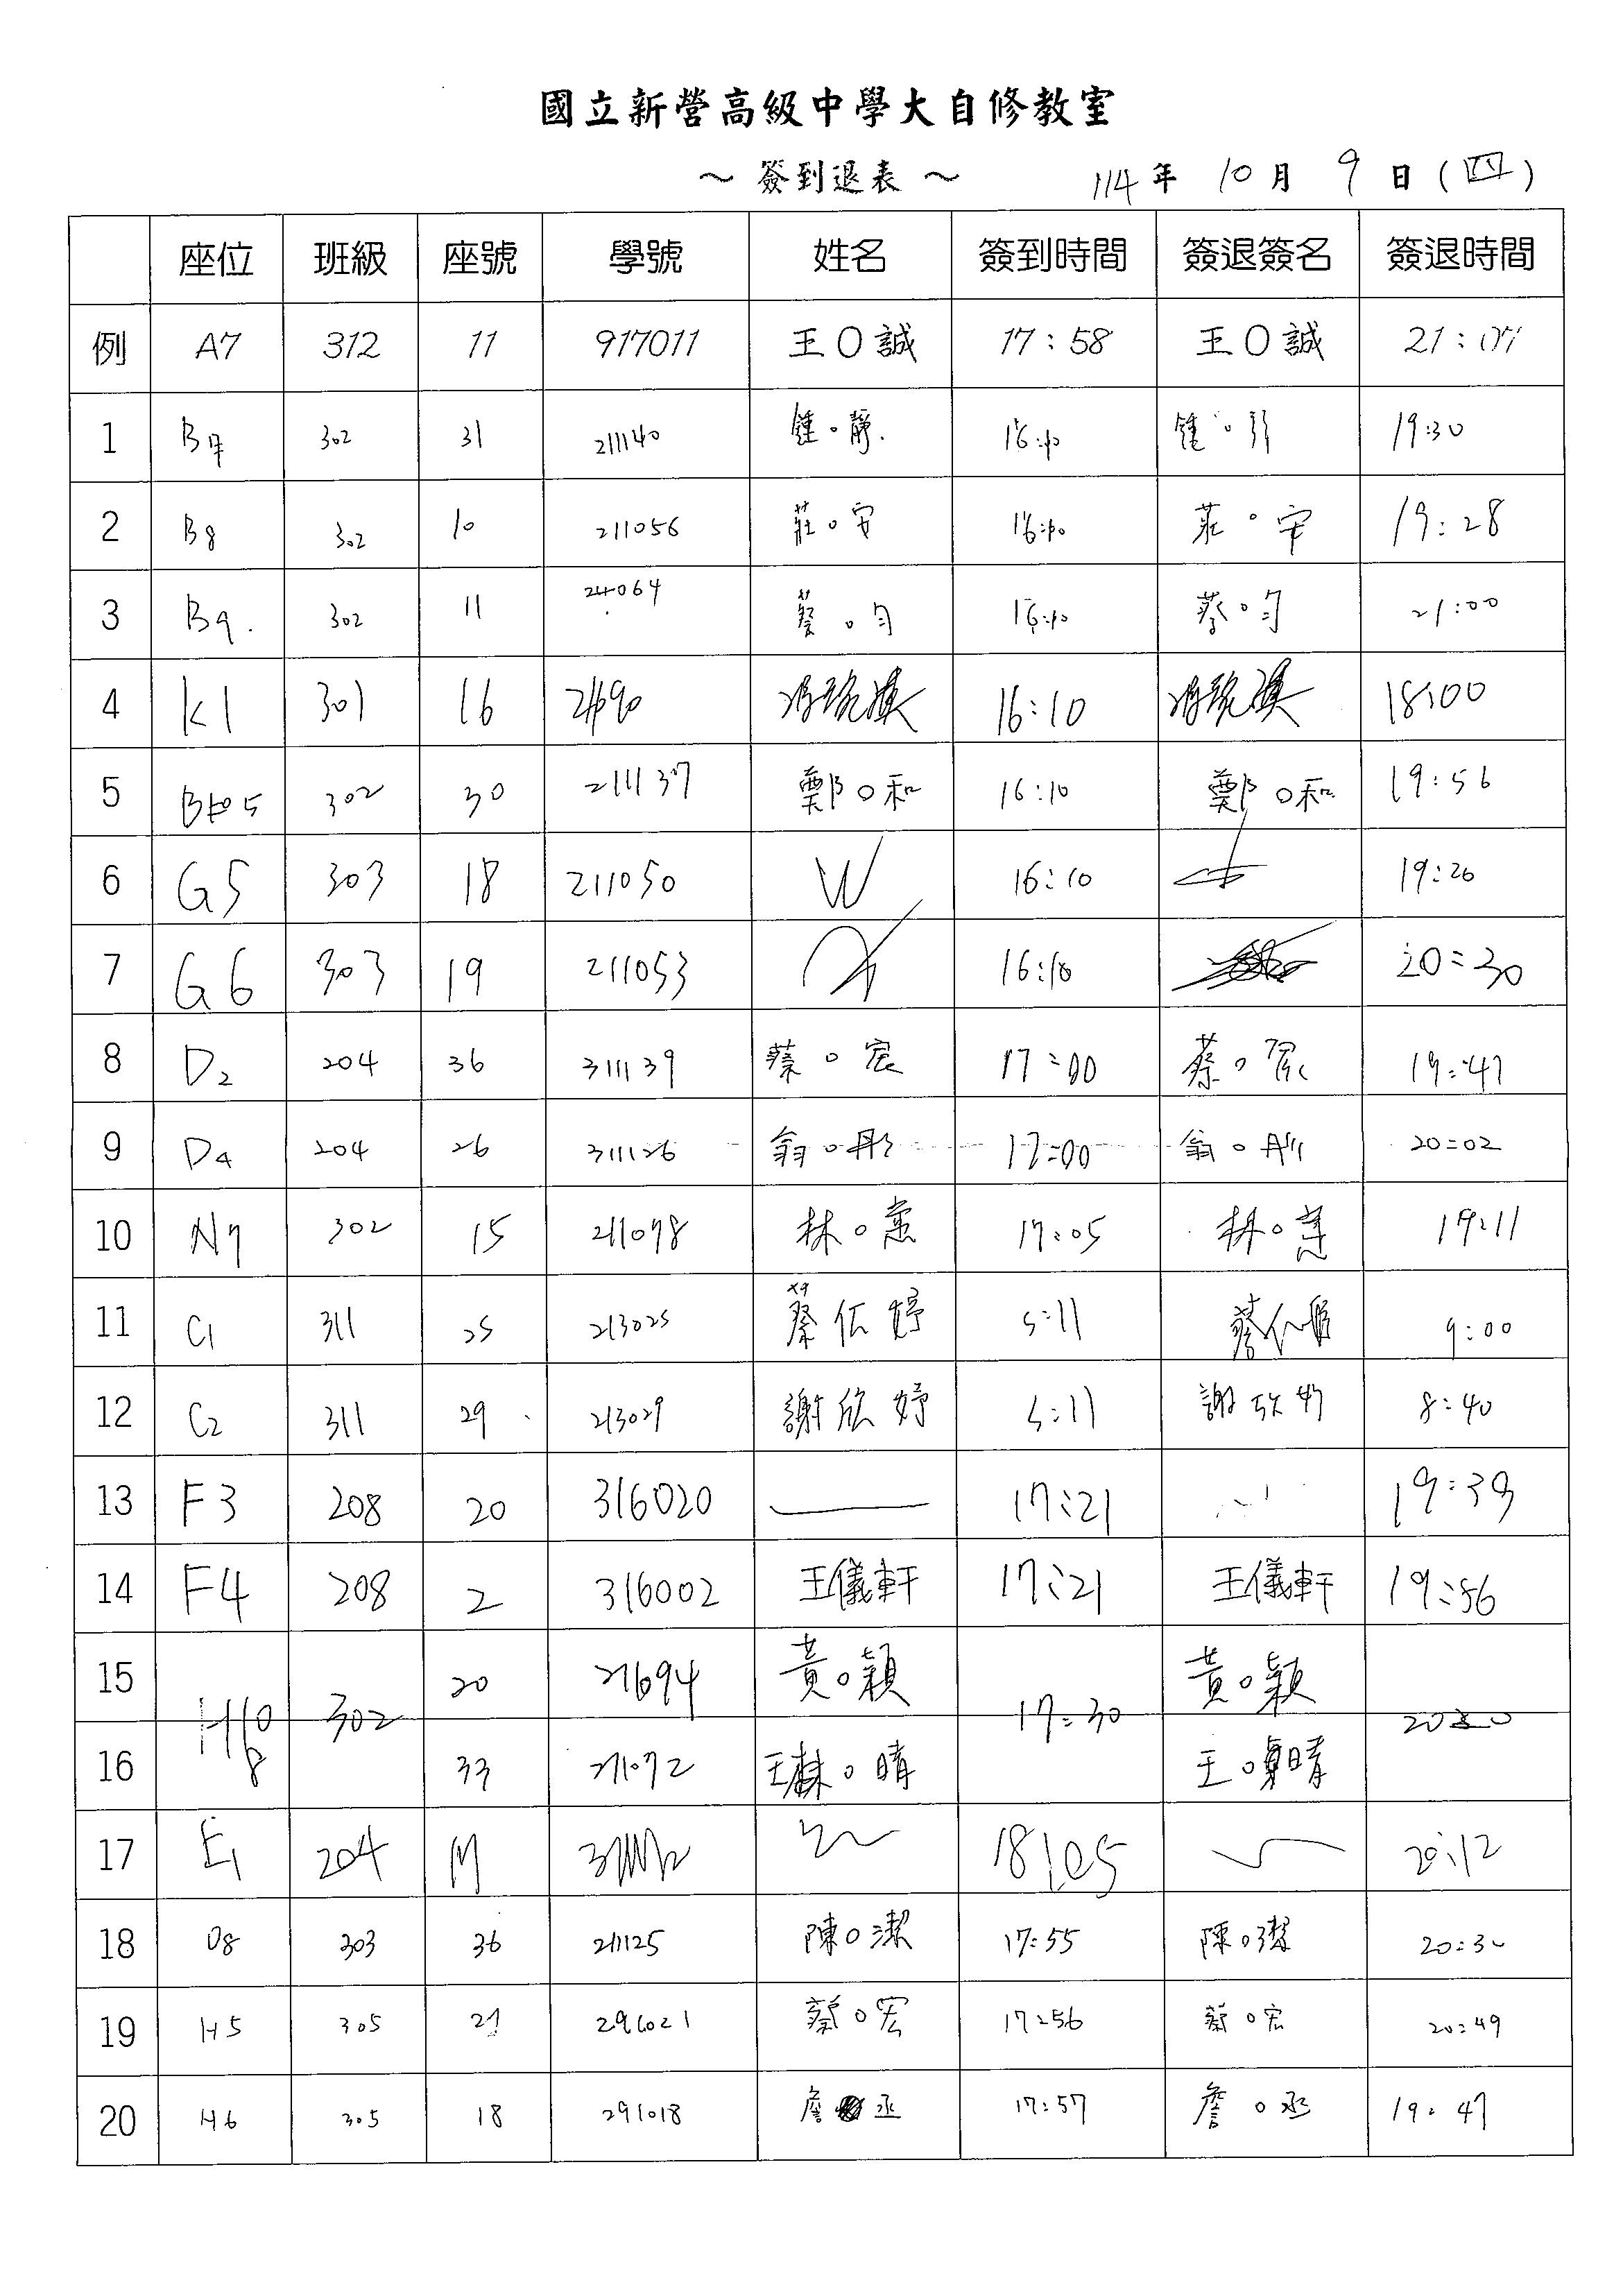 國立新營高級中學大自修教室
～ 簽到退表 ～ 114 年 10 月 9 日 (四)
座位 班級 座號 學號 姓名 簽到時間 簽退簽名 簽退時間
例 A7 312 11 917011 王O誠 17:58 王O誠 21:07
1 302 31 211140 鍾。靜. 16:10 鍾 19:30
2 B8 302 10 211056 莊。安 16:10 莊。安 19:28
3 B9. 302 11 064 蔡。勻 16:10 蔡。勻 21:00
4 K1 301 16 16:10 18:00
5 5 302 30 211137 鄭O和 16:10 鄭O和 19:56
6 G5 303 18 211050 16:10 19:20
7 G6 303 19 211053 16:10 20:30
8 D2 204 36 311139 蔡。宸 17:00 蔡。宸 19:47
9 D4 204 26 311126 翁。彤 17:00 翁。彤 20:02
10 N7 302 15 211078 林。蕙 17:05 林。蕙 19:11
11 C1 311 25 213025 蔡伝妤 5:11 9:00
12 C2 311 29 213029 謝欣妤 5:11 謝欣妤 8:40
13 F3 208 20 316020 17:21 19:39
14 F4 208 2 316002 王儀軒 17:21 王儀軒 19:56
15 20 黃。穎 黃。穎
H 8 302 17:30
16 33 211072 。晴 王。晴
17 E1 204 18:05 20:12
18 O8 303 36 211125 陳O潔 17:55 陳O潔 20:30
19 H5 305 21 291021 蔡O宏 17:56 蔡O宏 20:49
20 H6 305 18 291018 詹 丞 17:57 詹O丞 19:47